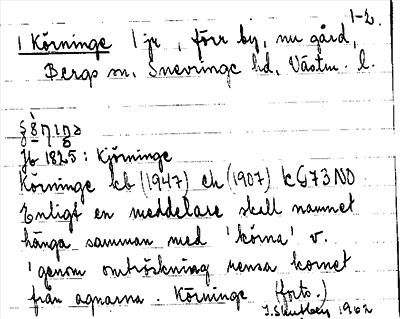 1-2.
1 Körninge 1 jr , förr by, nu gård,
Bergs sn, Snevringe hd, Västm. l.
Jb 1825: Kjörninge
Körninge kb (1947) ek (1907) kG73NO
Enligt en meddelare skall namnet
hänga samman med 'körna' v.
'genom omtröskning rensa kornet
från agnarna. Körninge (forts.)
1962